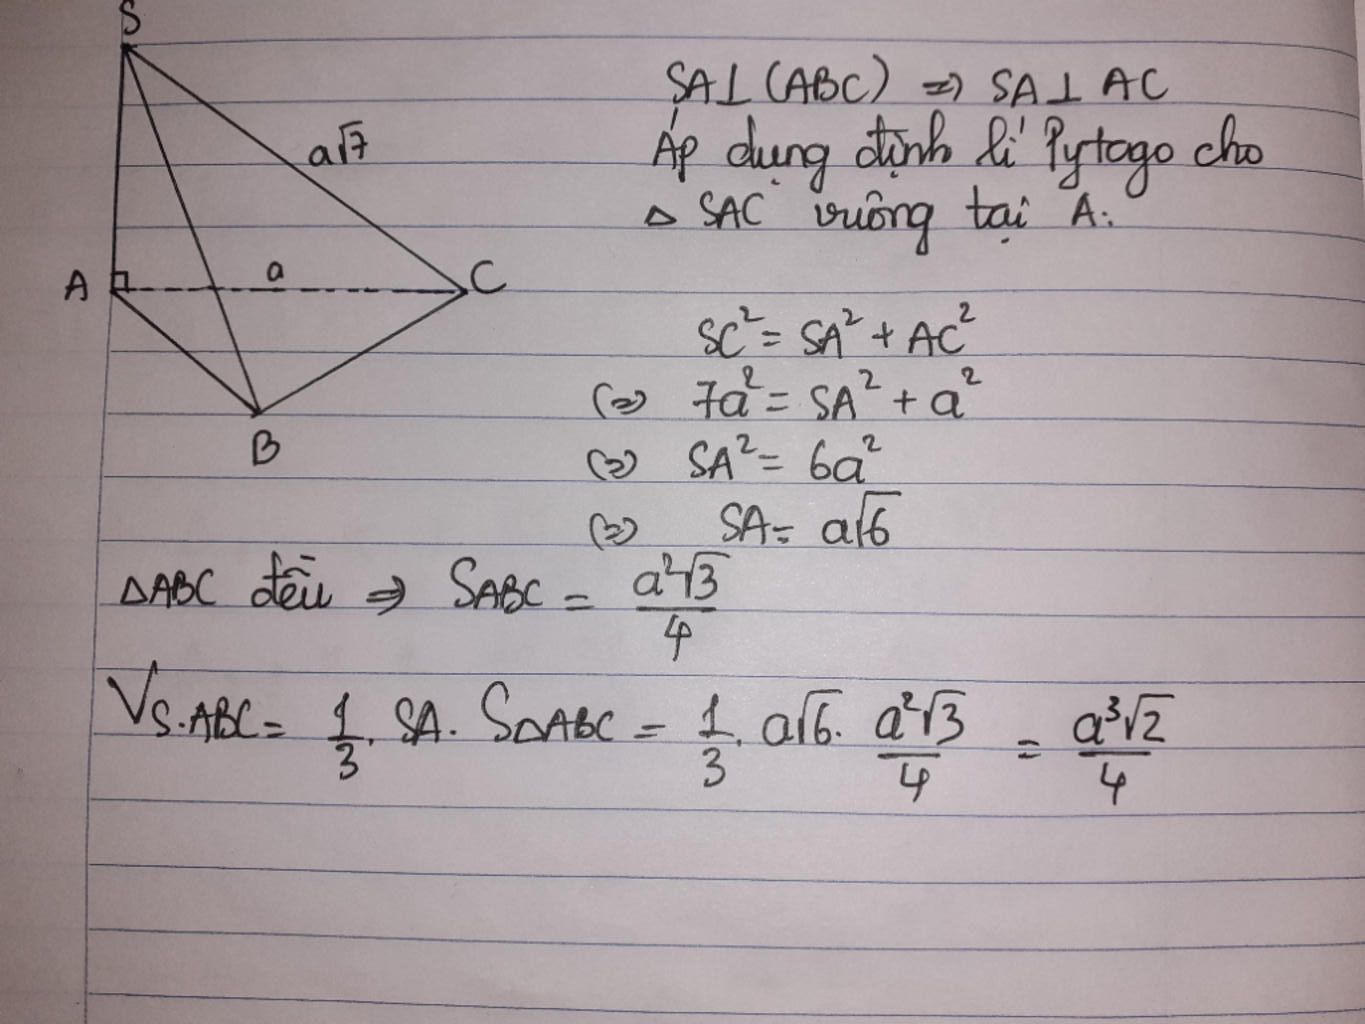 S
a√7
A
a
C
B
SA⊥(ABC) => SA⊥AC
Áp dụng định lí Pytago cho
△SAC vuông tại A:
SC² = SA² + AC²
(=) 7a² = SA² + a²
(=) SA² = 6a²
(=) SA = a√6
△ABC đều => S_ABC = a²√3/4
V_S.ABC = 1/3 . SA . S_△ABC = 1/3 . a√6 . a²√3/4 = a³√2/4